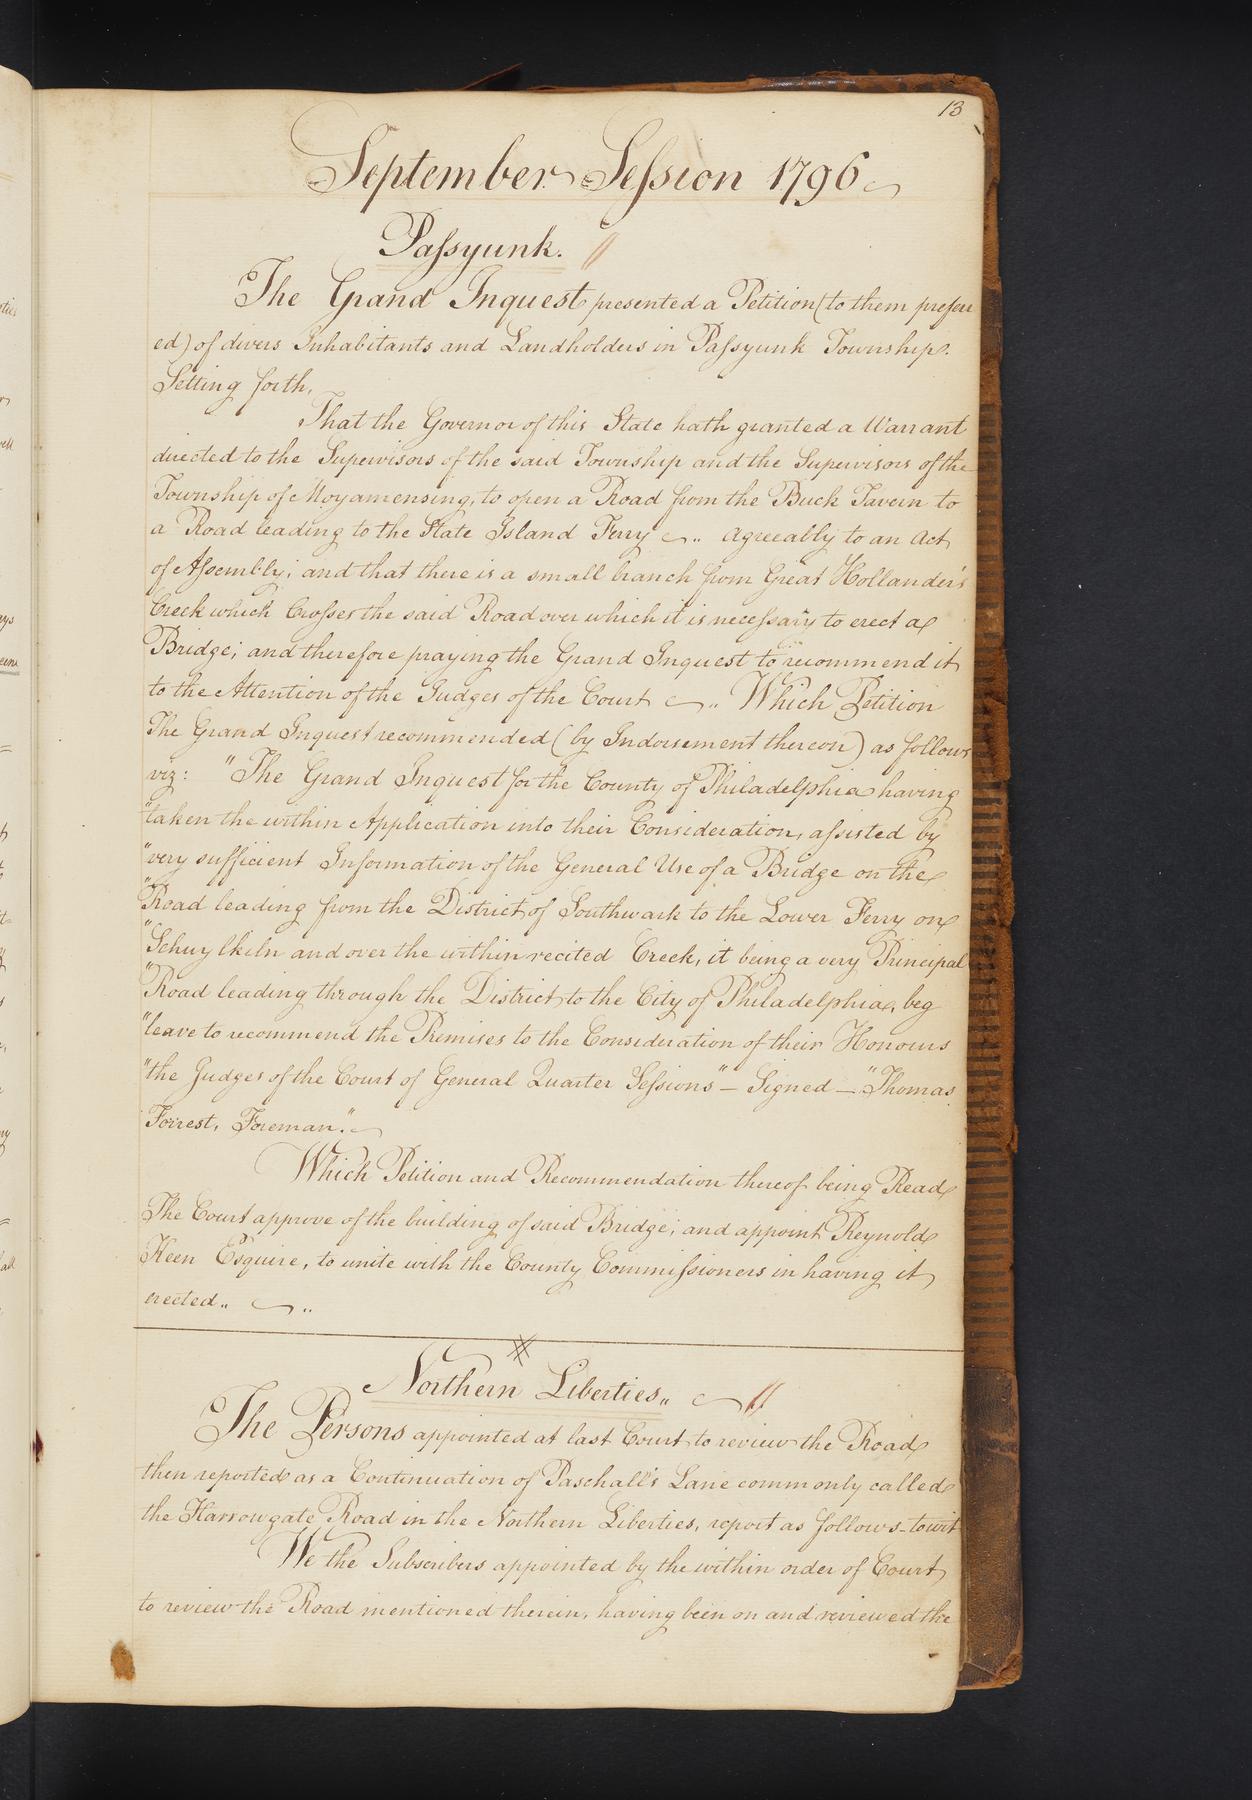 13
September Session 1796
Passyunk.
The Grand Inquest presented a Petition (to them preferr
ed) of divers Inhabitants and Landholders in Passyunk Township.
Setting forth,
That the Governor of this State hath granted a Warrant
directed to the Supervisors of the said Township and the Supervisors of the
Township of Moyamensing, to open a Road from the Buck Tavern to
a Road leading to the State Island Ferry agreeably to an Act
of Assembly; and that there is a small branch from Great Hollander's
Creek which Crosses the said Road over which it is necessary to erect a
Bridge; and therefore praying the Grand Inquest to recommend it
to the Attention of the Judges of the Court .. Which Petition
The Grand Inquest recommended (by Indorsement thereon) as follows
viz: "The Grand Inquest for the County of Philadelphia having
"taken the within Application into their Consideration, assisted by
"very sufficient Information of the General Use of a Bridge on the
"Road leading from the District of Southwark to the Lower Ferry on
"Schuylkiln and over the within recited Creek, it being a very Principal
"Road leading through the District to the City of Philadelphia, beg
"leave to recommend the Premises to the Consideration of their Honours
"the Judges of the Court of General Quarter Sessions" — Signed — "Thomas
Forrest, Foreman."
Which Petition and Recommendation thereof being Read
The Court approve of the building of said Bridge; and appoint Reynold
Keen Esquire, to unite with the County Commissioners in having it
erected..
Northern Liberties..
The Persons appointed at last Court to review the Road
then reported as a Continuation of Paschall's Lane commonly called
the Harrowgate Road in the Northern Liberties, report as follows - towit
We the Subscribers appointed by the within order of Court
to review the Road mentioned therein, having been on and reviewed the